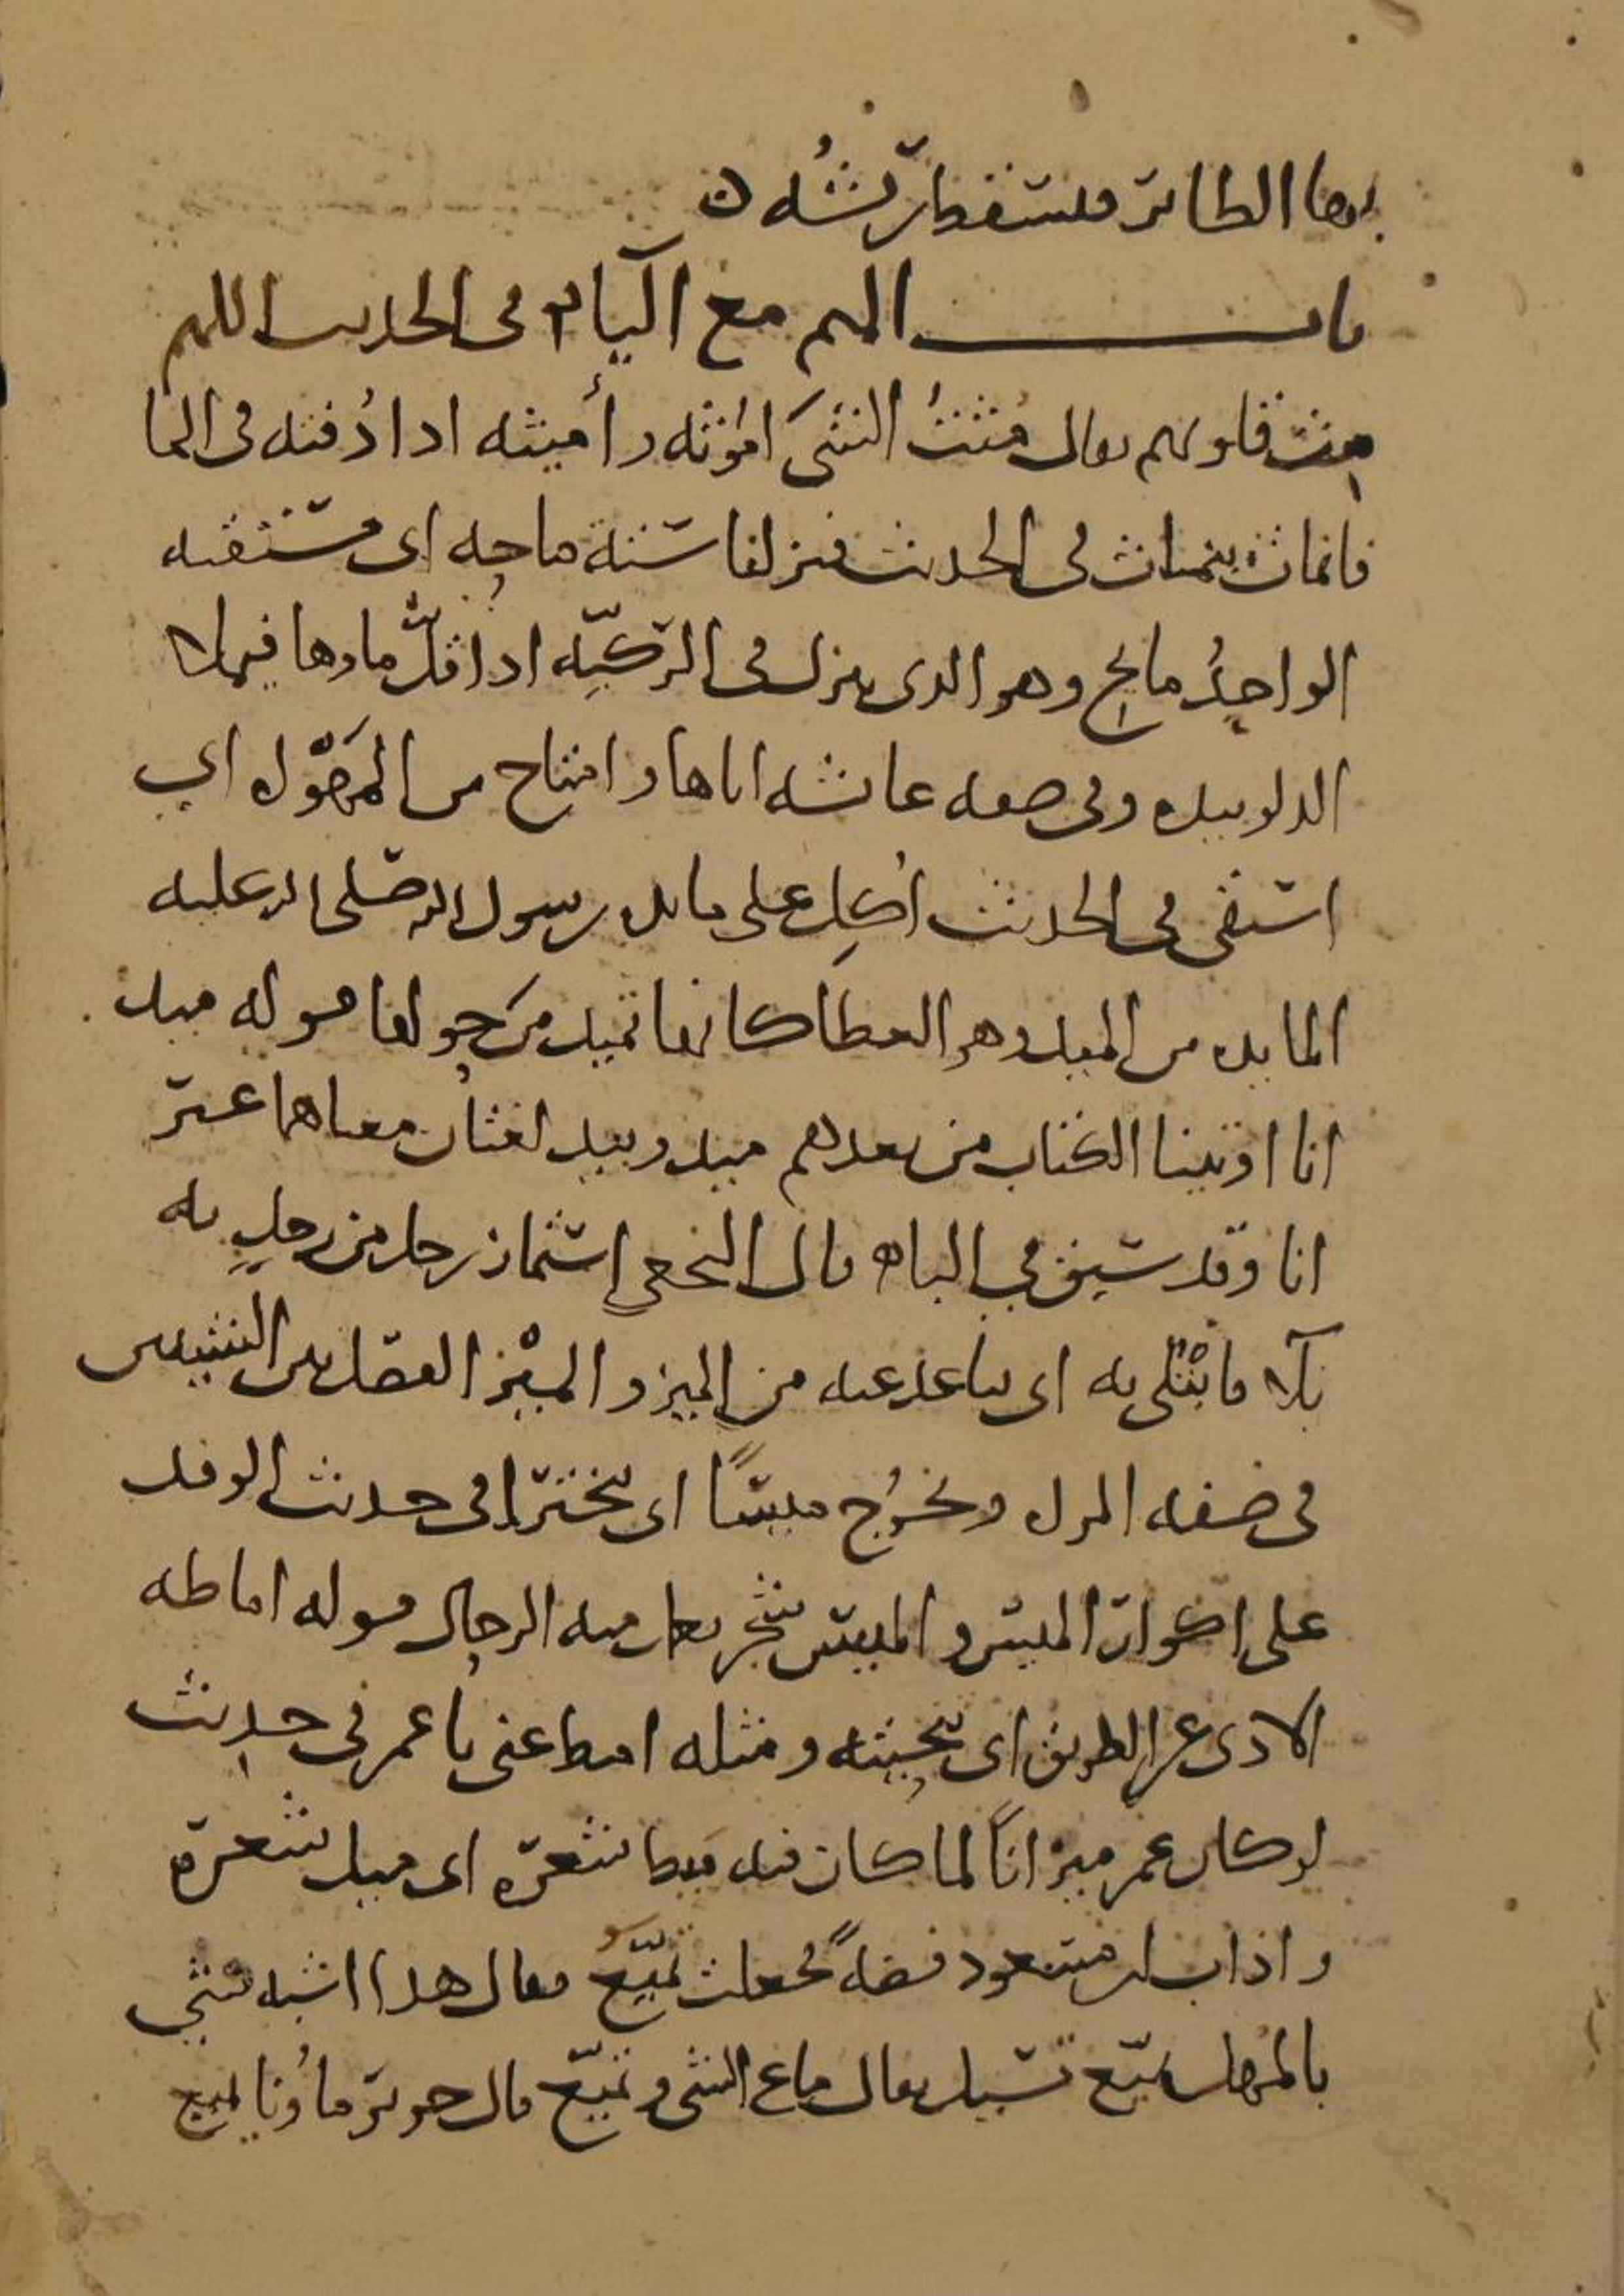 بها الطائر فيسقط ريشه ه
باب الميم مع الياء في الحديث اللهم
مث قلوبهم يقال مثت الشي اموثه وأميثه اذا دُفته في الما
فانماث ينماث في الحديث فنزلنا ستة ماحه اي مستقيه
الواحدُ مايح وهو الذي ينزل في الركيّه اذا قلّ ماوها فيملا
الدلو بيده وفي صفه عائشه اباها وامتاح من المَهْوَاه اي
استقى في الحديث اُكِل على مايده رسول الله صلى الله عليه
المايده من الميد وهو العطا كانها تميد مَن حولها قوله ميد
انا اوتينا الكتاب من بعدهم ميد وبيد لغتان معناهما غير
انا وقد سبق في الباء قال النخعي استماز رجل من رجلٍ به
بَلاء فابْتُلى به اي تباعد عنه من الميز والميْز الفصل بين الشيين
في صفه الرجل وتخرُج ميسًا اي تبخترا في حديث الوفد
على اكوار الميس والميس شجر يعمل منه الرحال قوله اماطه
الاذى عن الطريق اي تنحيته ومثله امط عني يا عمر في حديث
لو كان عمر ميزانًا لما كان فيه ميط شعره اي ميل شعره
واذاب ابن مسعود فضهً فجعلت تميّع فقال هذا اشبه شي
بالمهل تميّع تسيل يقال ماع الشي وتميّع قال جرير ماؤنا يميع